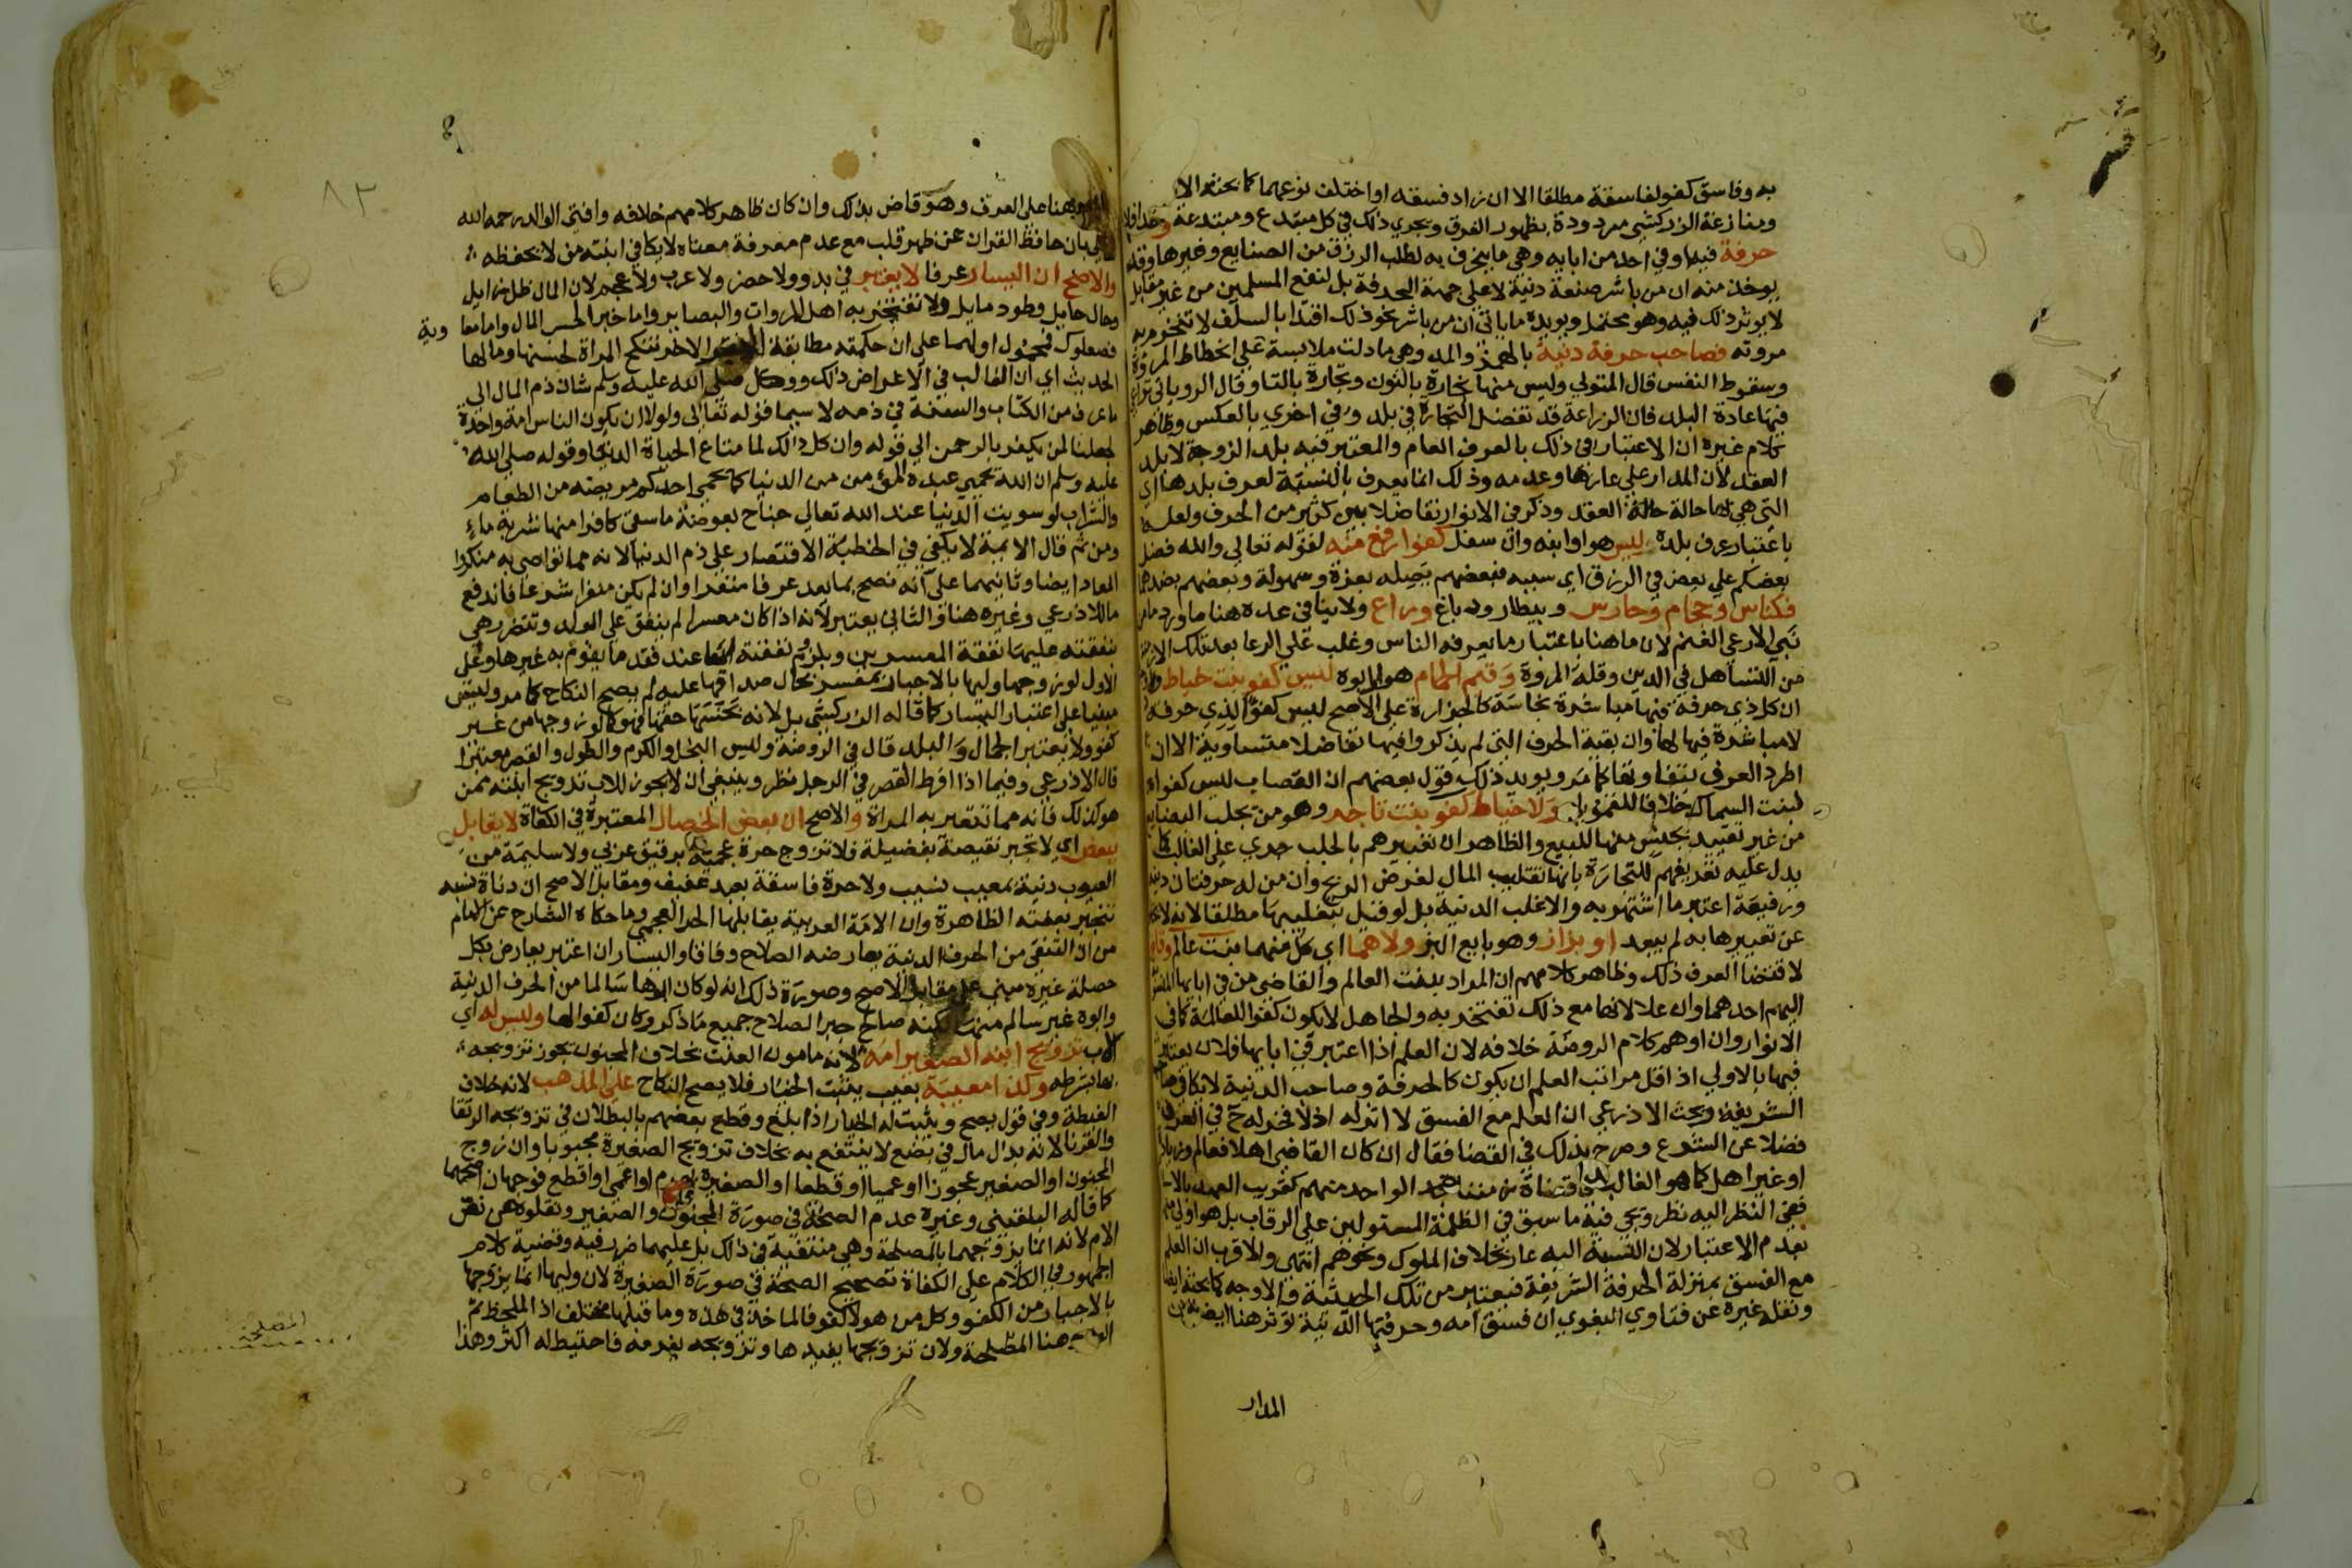 به وفاسق كفو لفاسقة مطلقا الا ان زاد فسقه او اختلف نوعهما كما بحثه الا
ومنازعة الزركشي مردودة بظهور الفرق ويجري ذلك في كل مبتدع ومبتدعة
حرفة فيه او في احد من ابايه وهي ما ينحرف به لطلب الرزق من الصنايع وغيرها وقد
يوخذ منه ان من باشر صنعة دنية لا على جهة الحرفة بل لنفع المسلمين من غير مقابل
لا يوثر ذلك فيه وهو محتمل ويويده ما ياتي ان من باشر نحو ذلك اقتدا بالسلف لا تنخرم به
مروته فصاحب حرفة دنية بالهمز والمد وهي ما دلت ملابسة على انحطاط المروة
وسقوط النفس قال المتولي وليس منها نجارة بالنون وتجارة بالتا وقال الروياني
فيها عادة البلد فان الزراعة قد تفضل التجارة في بلد وفي اخري بالعكس وظاهر
كلام غيره ان الاعتبار في ذلك بالعرف العام والمعتبر فيه بلد الزوجة لا بلد
العقد لان المدار على عارها وعدمه وذلك انما يعرف بالنسبة لعرف بلدها اي
التي هي بها حالة العقد وذكر في الانوار تفاضلا بين كثير من الحرف ولعله
باعتبار عرف بلده ليس هو او ابنه وان سفل كفو ارفع منه لقوله تعالى والله فضل
بعضكم على بعض في الرزق اي سببه فبعضهم يصله بعزة وسهولة وبعضهم بضدها
فكناس وحجام وحارس وبيطار ودباغ وراع ولا ينافي عده هنا ما ورد ما من
نبي الا رعي الغنم لان ما هنا باعتبار ما يعرفه الناس وغلب على الرعا بعد تلك
من التساهل في الدين وقلة المروة وقيم الحمام هو او ابوه ليس كفو بنت خياط
ان كل ذي حرفة فيها مباشرة نجاسة كالجزارة على الاصح ليس كفوا لذي حرفة
لا مباشرة فيها لها وان بقية الحرف التي لم يذكروا فيها تفاضلا متساوية الا ان
اطرد العرف بتفاوتها كما مر ويويد ذلك قول بعضهم ان القصاب ليس كفوا
لبنت السماك خلافا للقمولي ولا خياط كفو بنت تاجر وهو من يجلب البضايع
من غير تقييد بجنس منها للبيع والظاهر ان تعبيرهم بالجلب جري على الغالب كما
يدل عليه تعريفهم للتجارة بانها تقليب المال لغرض الربح وان من له حرفتان دنية
ورفيعة اعتبر ما اشتهر به والا غلب الدنية بل لو قيل بتغليبها مطلقا لانه لا
عن تعييرها به لم يبعد او بزاز وهو بايع البز ولا هما اي كل منهما بنت عالم وقاض
لاقتضا العرف ذلك وظاهر كلامهم ان المراد ببنت العالم والقاضي من في ابايها
اليهم احدهما وان علا لانها مع ذلك تفتخر به والجاهل لا يكون كفوا للعالمة كما في
الانوار وان اوهم كلام الروضة خلافه لان العلم اذا اعتبر في ابايها فلان يعتبر
فيها بالاولي اذ اقل مراتب العلم ان يكون كالحرفة وصاحب الدنية لا يكافي صاحب
الشريفة وبحث الاذرعي ان العلم مع الفسق لا اثر له اذ لا فخر له ح في العرف
فضلا عن الشرع وصرح بذلك في القضا فقال ان كان القاضي اهلا فعالم وزيادة
او غير اهل كما هو الغالب في قضاة زمننا تجد الواحد منهم كقريب العهد بالا
ففي النظر اليه نظر ويجي فيه ما سبق في الظلمة المستولين على الرقاب بل هو اولي منهم
بعدم الاعتبار لان النسبة اليه عار بخلاف الملوك ونحوهم انتهى والاقرب ان العلم
مع الفسق بمنزلة الحرفة الشريفة فيعتبر من تلك الحيثية فالاوجه كما بحثه ايضا
ونقله غيره عن فتاوي البغوي ان فسق امه وحرفتها الدنية توثر هنا ايضا
المدار
٨٣
هنا على العرف وهو قاض بذلك وان كان ظاهر كلامهم خلافه وافتي الوالد رحمه الله
بان حافظ القران عن ظهر قلب مع عدم معرفة معناه لا يكافي ابنته من لا يحفظه
والاصح ان اليسار عرفا لا يعتبر في بدو ولا حضر ولا عرب ولا عجم لان المال ظل زايل
وحال حايل وطود مايل ولا تفتخر به اهل المروات والبصاير واما خبر الحسب المال واما معا
وية
فصعلوك فمحمول اولهما على ان حكمته مطابقة الاخر تنكح المراة لحسبها ومالها
الحديث اي ان الغالب في الاغراض ذلك ووكل صلى الله عليه وسلم شان ذم المال الى
ما عرف من الكتاب والسنة في ذمه لا سيما قوله تعالى ولولا ان يكون الناس امة واحدة
لجعلنا لمن يكفر بالرحمن الي قوله وان كل ذلك لما متاع الحياة الدنيا وقوله صلى الله
عليه وسلم ان الله يحمي عبده المؤمن من الدنيا كما يحمي احدكم مريضه من الطعام
والشراب لو سويت الدنيا عند الله تعالى جناح بعوضة ما سقى كافرا منها شربة ماء
ومن ثم قال الايمة لا يكفي في الخطبة الاقتصار على ذم الدنيا لانه مما تواصي به منكروا
المعاد ايضا وثانيهما على انه نصح بما يعد عرفا منفرا وان لم يكن منفرا شرعا فاندفع
ما للاذرعي وغيره هنا والثاني يعتبر لانه اذا كان معسرا لم ينفق على الولد وتتضرر هي
بنفقته عليها نفقة المعسرين وبلزوم نفقته لها عند فقد ما يقوم به غيرها وعلى
الاول لو زوجها وليها بالاجبار بمعسر بحال صداقها عليه لم يصح النكاح كما مر وليس
مبنيا على اعتبار اليسار كما قاله الزركشي بل لانه بخسها حقها فهو كما لو زوجها من غير
كفو ولا يعتبر الجمال والبلد قال في الروضة وليس البخل والكرم والطول والقصر معتبرا
قال الاذرعي وفيما اذا افرط القصر في الرجل نظر وينبغي ان لا يجوز للاب تزويج ابنته ممن
هو كذلك فانه مما تتعير به المراة والاصح ان بعض الخصال المعتبرة في الكفاة لا يقابل
ببعض اي لا تجبر نقيصة بفضيلة فلا تزوج حرة عجمية برقيق عربي ولا سليمة من
العيوب دنية بمعيب نسيب ولا حرة فاسقة بعبد عفيف ومقابل الاصح ان دناة نسبه
تنجبر بعفته الظاهرة وان الامة العربية يقابلها الحر العجمي وما حكاه الشارح عن الامام
من ان التنقي من الحرف الدنية يعارضه الصلاح وفاقا واليسار ان اعتبر يعارض بكل
خصلة غيره مبني على مقابل الاصح وصورة ذلك انه لو كان ابوها سالما من الحرف الدنية
وابوه غير سالم منها لكنه صالح جبر الصلاح جميع ما ذكر وكان كفوا لها وليس له اي
الاب تزويج ابنه الصغير امة لانه مامون العنت بخلاف المجنون يجوز تزويجه
بها بشرطه وكذا معيبة بعيب يثبت الخيار فلا يصح النكاح على المذهب لانه خلاف
الغبطة وفي قول يصح ويثبت له الخيار اذا بلغ وقطع بعضهم بالبطلان في تزويجه الرتقا
والقرنا لانه بذل مال في بضع لا ينتفع به بخلاف تزويج الصغيرة مجبوبا وان زوج
المجنون او الصغير عجوزا او عميا او قطعا او الصغيرة بهرم او اعمى او اقطع فوجهان اصحهما
كما قاله البلقيني وغيره عدم الصحة في صورة المجنون والصغير ونقلوه عن نص
الام لانه انما يزوجهما بالمصلحة وهي منتفية في ذلك بل عليهما ضرر فيه وقضية كلام
الجمهور في الكلام على الكفاة تصحيح الصحة في صورة الصغيرة لان وليها انما يزوجها
بالاجبار من الكفو وكل من هولا كفو فالماخذ في هذه وما قبلها مختلف اذ الملحظ ثم
هنا المصلحة ولان تزويجها يفيدها وتزويجه يغرمه فاحتيط له اكثر وهذا
المصلحة